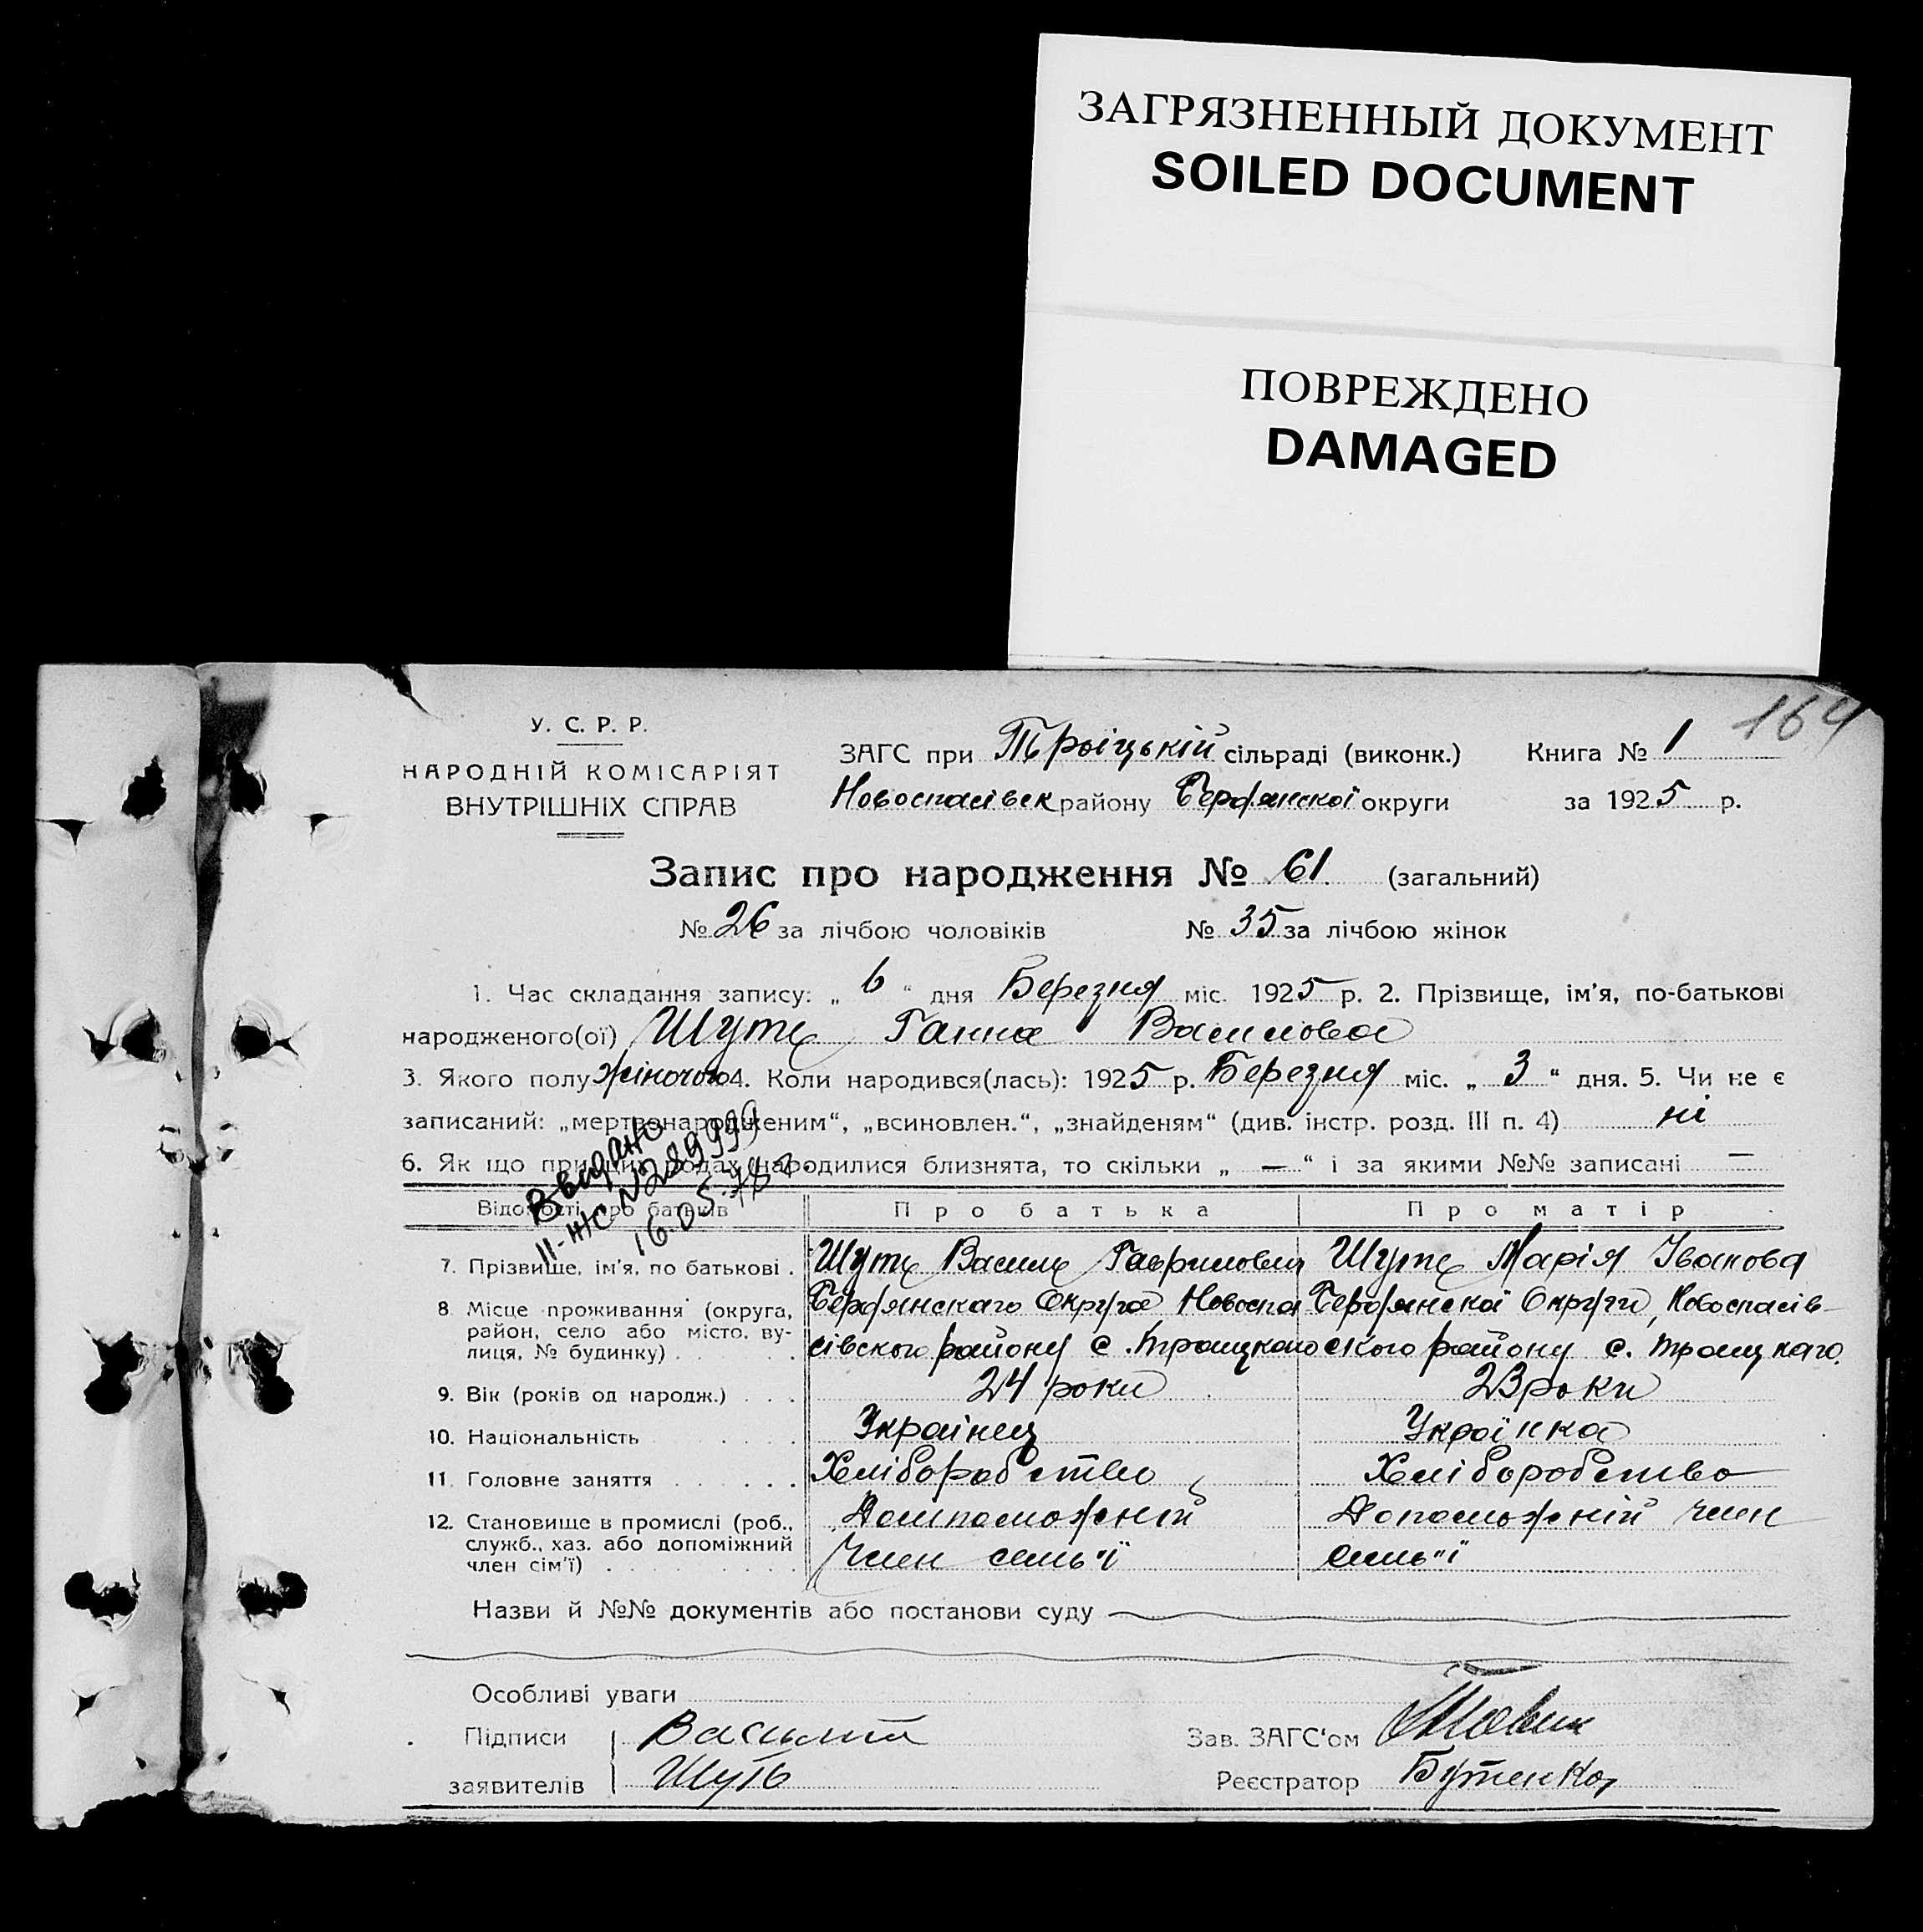 ЗАГРЯЗНЕННЫЙ ДОКУМЕНТ
SOILED DOCUMENT
ПОВРЕЖДЕНО
DAMAGED
164
У. С. Р. Р.
НАРОДНІЙ КОМІСАРІЯТ
ВНУТРІШНІХ СПРАВ
ЗАГС при Троіцькій сільраді (виконк.) Книга № 1
Новоспасівск району Бердянскої округи за 1925 р.
Запис про народження № 61 (загальний)
№ 26 за лічбою чоловіків № 35 за лічбою жінок
1. Час складання запису: „ 6 “ дня Березня міс. 1925 р. 2. Прізвище, ім'я, по-батькові
народженого(ої) Шуть Ганна Василова
3. Якого полу жіночого 4. Коли народився(лась): 1925 р. Березня міс. „ 3 “ дня. 5. Чи не є
записаний: „мертвонародженим“, „всиновлен.“, „знайденям“ (див. інстр. розд. III п. 4) ні
6. Як що при цих родах народилися близнята, то скільки „ — “ і за якими №№ записані —
Видано
II-ЖС №289999
16.05.78
Відомості про батьків Про батька Про матір
7. Прізвище, ім'я, по батькові . Шуть Василь Гаврилович Шуть Марія Іванова
8 Місце проживання (округа, Бердянскаго Округа Новоспа Бердянскої Округи, Новоспасів-
район, село або місто, ву-
лиця, № будинку) . сівского району с. Троицкого ского району с. Троицкаго.
9. Вік (років од народж.) . . . 24 роки 23 роки
10. Національність Українец Українка
11. Головне заняття Хліборобство Хліборобство
12. Становище в промислі (роб., Допоможній Допоможній член
служб., хаз. або допоміжний
член сім'ї) член семь"ї семь"ї
Назви й №№ документів або постанови суду
Особливі уваги
Підписи Зав. ЗАГС'ом
заявителів Шуть Реєстратор Бутенко